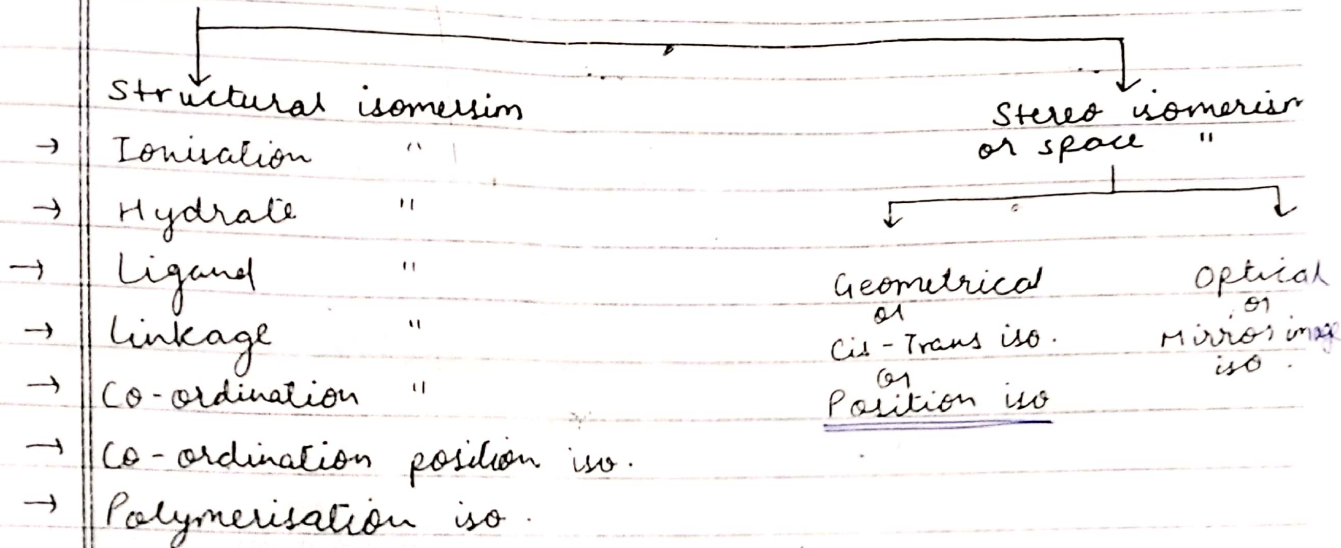 Structural isomerism
→ Ionisation "
→ Hydrate "
→ Ligand "
→ Linkage "
→ Co-ordination "
→ Co-ordination position iso.
→ Polymerisation iso.
Stereo isomerism
or space "
Geometrical
or
Cis-Trans iso.
or
Position iso
Optical
or
Mirror image
iso.